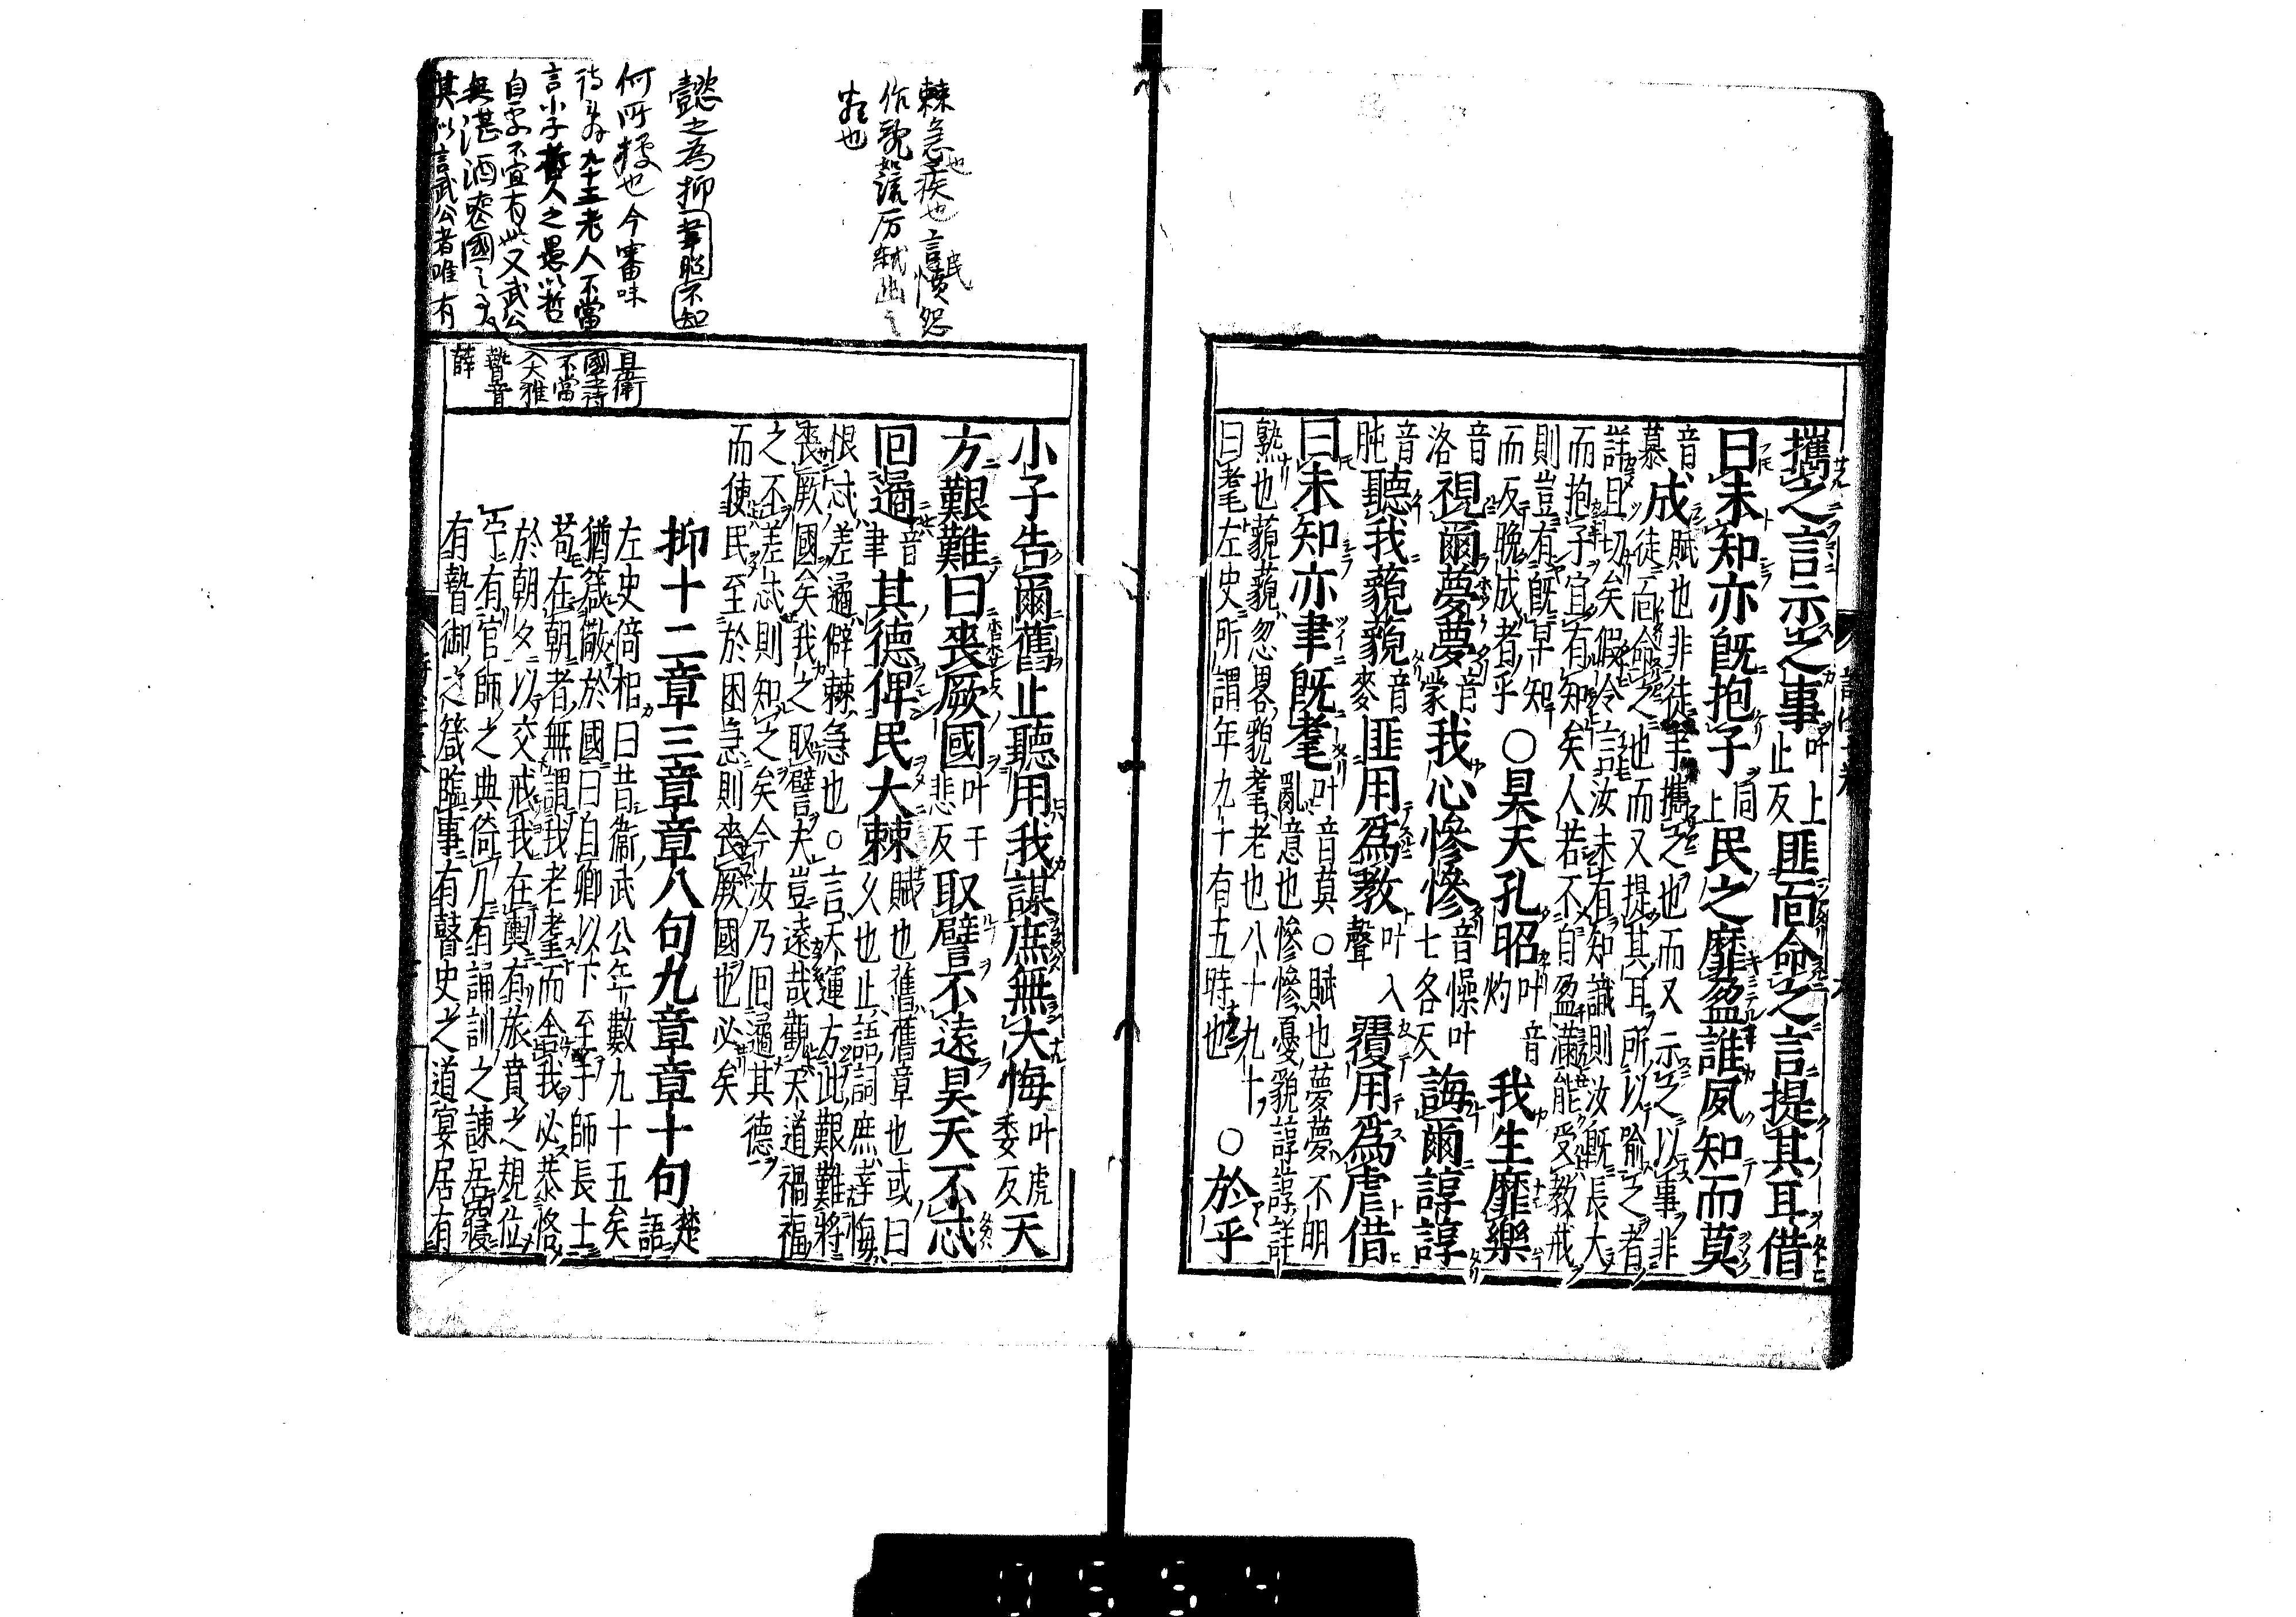 攜之言示之事叶上止反匪面命之言提其耳借
曰未知亦既抱子同上民之靡盈誰夙知而莫
音慕成賦也非徒手攜之也而又示之以事非
徒面命之也而又提其耳所以喻之者
詳且切矣假令言汝未有知識則汝既長大
而抱子宜有知矣人若不自盈滿能受教戒
則豈有既早知
而反晚成者乎○昊天孔昭叶音灼我生靡樂
音洛視爾夢夢音蒙我心慘慘音懆叶七各反誨爾諄諄
音肫聽我藐藐音麥匪用爲教叶入聲覆用爲虐借
曰未知亦聿既耄叶音莫○賦也夢夢不明
亂意也慘慘憂貌諄諄詳
熟也藐藐忽畧貌耄老也八十九十
曰耄左史所謂年九十有五時也○於乎
小子告爾舊止聽用我謀庶無大悔叶虎委反天
方艱難曰喪厥國叶于悲反取譬不遠昊天不忒
回遹音聿其德俾民大棘賦也舊舊章也或曰
久也止語詞庶幸悔
恨忒差遹僻棘急也○言天運方此艱難將
喪厥國矣我之取譬夫豈遠哉觀天道禍福
之不差忒則知之矣今汝乃回遹其德
而使民至於困急則喪厥國也必矣
抑十二章三章章八句九章章十句楚語
左史倚相曰昔衞武公年數九十五矣
猶箴儆於國曰自卿以下至于師長士
苟在朝者無謂我老耄而舍我必恭恪
於朝夕以交戒我在輿有旅賁之規位
宁有官師之典倚几有誦訓之諫居寢
有暬御之箴臨事有瞽史之道宴居有
棘急也疾也言民憤怨
懿之為抑韋昭不知
何所據也今審味
詩辭九十五老人不當
言小子哲人之愚以哲
自處不宜有此又武公
無湛酒喪國之事
其以信武公者唯有
且衛
國之詩
不當
入大雅
暬音
薛
0554